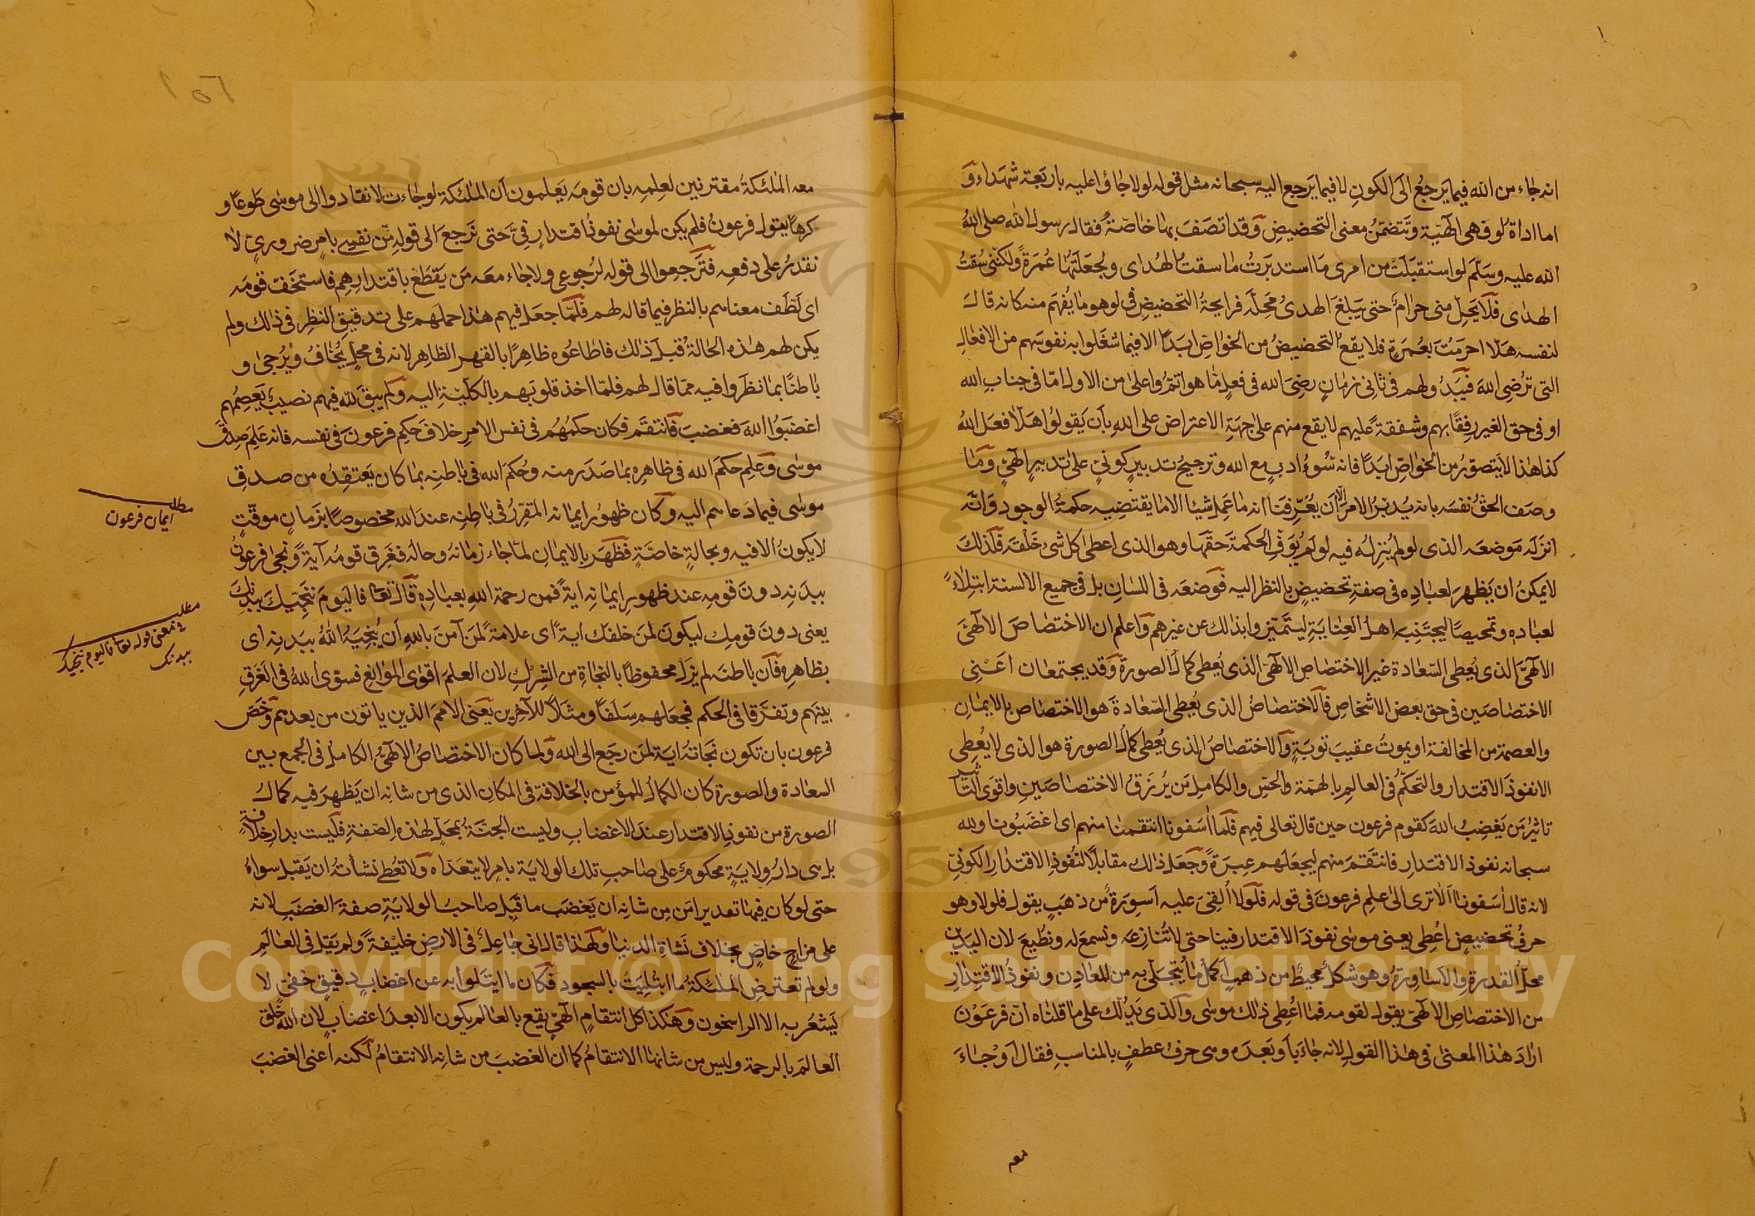 انه جاء من الله فيما يرجع الى الكون لا فيما يرجع اليه سبحانه مثل قوله لولا جاؤا عليه باربعة شهداء و
اما اداة لو فهي الهية وتتضمن معنى التحضيض وقد اتصف بها خاصة فقال رسول الله صلى الله
الله عليه وسلم لو استقبلت من امرى ما استدبرت ما سقت الهدى ولجعلتها عمرة ولكننى سقت
الهدى فلا يحل منى حرام حتى يبلغ الهدى محله فرايحة التحضيض فى لو هو ما يفهم منه كانه قال
لنفسه هلا احرمت بعمرة فلا يقع التحضيض من الخواص ابدا الا فيما شغلوا به نفوسهم من الافعال
التى ترضى الله فيبدو لهم فى ثانى زمان رضى الله فى فعل ما هو اتم واعلى من الاول اما فى جناب الله
او فى حق الغير رفقا بهم وشفقة عليهم لا يقع منهم على جهة الاعتراض على الله بان يقولوا هلا فعل الله
كذا هذا لا يتصور من الخواص ابدا فانه سوء ادب مع الله وترجيح تدبير كونى على تدبير الهى وما
وصف الحق نفسه بانه يدبر الامر الا ان يعرفنا انه ما عمل شيا الا ما يقتضيه حكمة الوجود وانه
انزله موضعه الذى لو لم ينزله فيه لو لم يوف الحكمة حقها وهو الذى اعطى كل شئ خلقه فلذلك
لا يمكن ان يظهر لعباده فى صفة تحضيض بالنظر اليه فوضعه فى اللسان بل فى جميع الالسنة ابتلاء
لعباده وتمحيصا ليجتنبه اهل العناية ليتميزوا بذلك عن غيرهم واعلم ان الاختصاص الالهى
الالهى الذى يعطى السعادة غير الاختصاص الالهى الذى يعطى كمال الصورة وقد يجتمعان اعنى
الاختصاصين فى حق بعض الاشخاص فالاختصاص الذى يعطى السعادة هو الاختصاص بالايمان
والعصمة من المخالفة او بموت عقيب توبة والاختصاص الذى يعطى كمال الصورة هو الذى لا يعطى
الا نفوذ الاقتدار والتحكم فى العالم بالهمة والحس والكامل من يرزق الاختصاصين واقوى التأ
تاثير من يغضب الله كقوم فرعون حين قال تعالى فيهم فلما اسفونا انتقمنا منهم اى اغضبونا ولله
سبحانه نفوذ الاقتدار فانتقم منهم ليجعلهم عبرة وجعل ذلك مقابلا لنفوذ الاقتدار الكونى
لانه قال اسفونا الا ترى الى علم فرعون فى قوله فلولا القى عليه اسورة من ذهب يقول فلولا وهو
حرف تحضيض اعطى يعنى موسى نفوذ الاقتدار فينا حتى لا ننازعه ونسمع له ونطيع لان اليدين
محل القدرة والاساورة وهو شكل محيط من ذهب اكمل ما يتحلى به من المعادن ونفوذ الاقتدار
من الاختصاص الالهى يقول لقومه فما اعطى ذلك موسى والذى يدلك على ما قلناه ان فرعون
اراد هذا المعنى فى هذا القول لانه جاء باو بعده وهى حرف عطف بالمناسب فقال او جاء
معه
معه الملئكة مقترنين لعلمه بان قومه يعلمون ان الملئكة لو جاءت لانقادوا الى موسى طوعا و
كرها يقول فرعون فلم يكن لموسى نفوذ اقتدار فى حتى نرجع الى قوله من نفسى بامر ضرورى لا
نقدر على دفعه فترجعوا الى قوله لرجوعى ولا جاء معه من يقطع باقتدارهم فاستخف قومه
اى لطف معناهم بالنظر فيما قاله لهم فلما جعل فيهم هذا حملهم على تدقيق النظر فى ذلك ولم
يكن لهم هذه الحالة قبل ذلك فاطاعوه ظاهرا بالقهر الظاهر لانه فى محل يخاف ويرجى و
باطنا بما نظروا فيه مما قال لهم فلما اخذ قلوبهم بالكلية اليه ولم يبق لله فيهم نصيب يعصمهم
اغضبوا الله فغضب فانتقم فكان حكمهم فى نفس الامر خلاف حكم فرعون فى نفسه فانه علم صدق
موسى وعلم حكم الله فى ظاهره بما صدر منه وحكم الله فى باطنه بما كان يعتقده من صدق
موسى فيما دعاهم اليه وكان ظهور ايمانه المقرر فى باطنه عند الله مخصوصا بزمان موقت
لا يكون الا فيه وبحالة خاصة فظهر بالايمان لما جاء زمانه وحاله فغرق قومه آية ونجى فرعون
ببدنه دون قومه عند ظهور ايمانه اية فمن رحمة الله بعباده قال تعا فاليوم ننجيك ببدنك
يعنى دون قومك ليكون لمن خلفك اية اى علامة لمن آمن بالله ان ينجيه الله ببدنه اى
بظاهره فان باطنه لم يزل محفوظا بالنجاة من الشرك لان العلم اقوى الموانع فسوى الله فى الغرق
بينهم وتفرقا فى الحكم فجعلهم سلفا ومثلا للآخرين يعنى الامم الذين ياتون من بعدهم وخص
فرعون بان تكون نجاته اية لمن رجع الى الله ولما كان الاختصاص الالهى الكامل فى الجمع بين
السعادة والصورة كان الكمال للمؤمن بالخلافة فى المكان الذى من شانه ان يظهر فيه كمال
الصورة من نفوذ الاقتدار عند الاغضاب وليست الجنة بمحل لهذه الصفة فليست بدار خلافة
بل هى دار ولاية محكوم على صاحب تلك الولاية بامر لا يتعداه ولا تعطى نشاته ان يقبل سواه
حتى لو كان فيها تقدير امن من شانه ان يغضب ما قبل صاحب الولاية صفة الغضب لانه
على مزاج خاص بخلاف نشاة الدنيا ولهذا قال انى جاعل فى الارض خليفة ولم يقل فى العالم
ولو لم تعترض الملئكة ما ابتليت بالسجود فكان ما ابتلوا به عن اغضاب دقيق خفى لا
يشعر به الا الراسخون وهكذا كل انتقام الهى يقع بالعالم يكون الا بعد اغضاب لان الله خلق
العالم بالرحمة وليس من شانها الانتقام كما ان الغضب من شانه الانتقام لكنه اعنى الغضب
مطلب
ايمان فرعون
مطلب
فى معنى قوله تعا فاليوم ننجيك
ببدنك